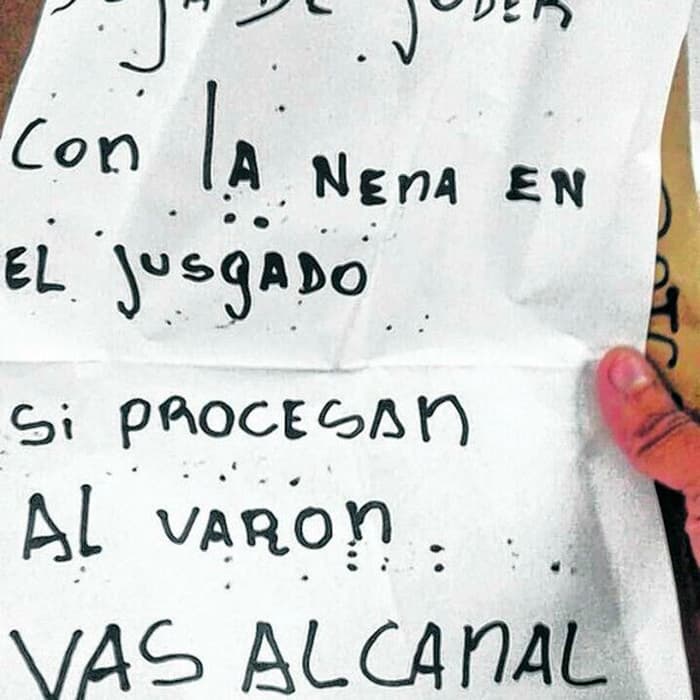 DEJA DE JODER
con lA NEnA EN
EL jusgADO
Si PROCESAn
Al VARON
VAS AL CANAL